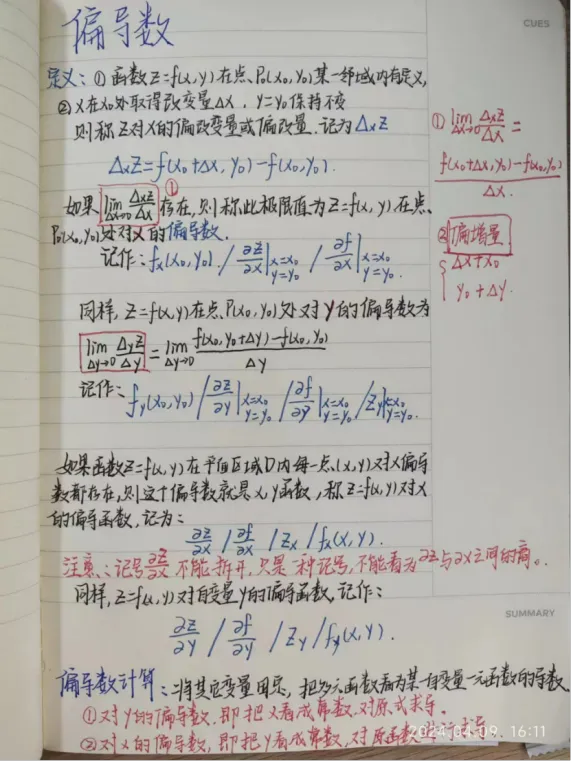 偏导数
CUES
定义：① 函数Z=f(x,y)在点P₀(x₀,y₀)某一邻域内有定义,
② x在x₀处取得改变量Δx, y=y₀保持不变
则称Z对x的偏改变量或偏改量.记为ΔxZ
ΔxZ=f(x₀+Δx, y₀)-f(x₀,y₀).
如果 lim Δx→0 ΔxZ/Δx ① 存在,则称此极限值为Z=f(x,y)在点
P₀(x₀,y₀)处对x的偏导数.
记作: fx(x₀,y₀) / ∂Z/∂x|x=x₀ y=y₀ / ∂f/∂x|x=x₀ y=y₀
同样, Z=f(x,y)在点P(x₀,y₀)处对y的偏导数为
lim Δy→0 ΔyZ/Δy = lim Δy→0 f(x₀,y₀+Δy)-f(x₀,y₀)/Δy
记作: fy(x₀,y₀) / ∂Z/∂y|x=x₀ y=y₀ / ∂f/∂y|x=x₀ y=y₀ / Zy|x=x₀ y=y₀.
如果函数Z=f(x,y)在平面区域D内每一点(x,y)对x偏导
数都存在,则这个偏导数就是x,y函数,称Z=f(x,y)对x
的偏导函数,记为:
∂Z/∂x / ∂f/∂x / Zx / fx(x,y).
注意:记号∂Z/∂x不能拆开,只是一种记号,不能看为∂Z与∂x之间的商。
同样,Z=f(x,y)对自变量y的偏导函数,记作:
∂Z/∂y / ∂f/∂y / Zy / fy(x,y).
偏导数计算:将其它变量固定,把多元函数看为某一自变量一元函数的导数
①对y的偏导数,即把x看成常数,对原式求导.
②对x的偏导数,即把y看成常数,对原函数进行求导.
① lim Δx→0 ΔxZ/Δx =
f(x₀+Δx,y₀)-f(x₀,y₀)/Δx.
② 偏增量
{ Δx+x₀
y₀+Δy.
SUMMARY
2024.04.09. 16:11